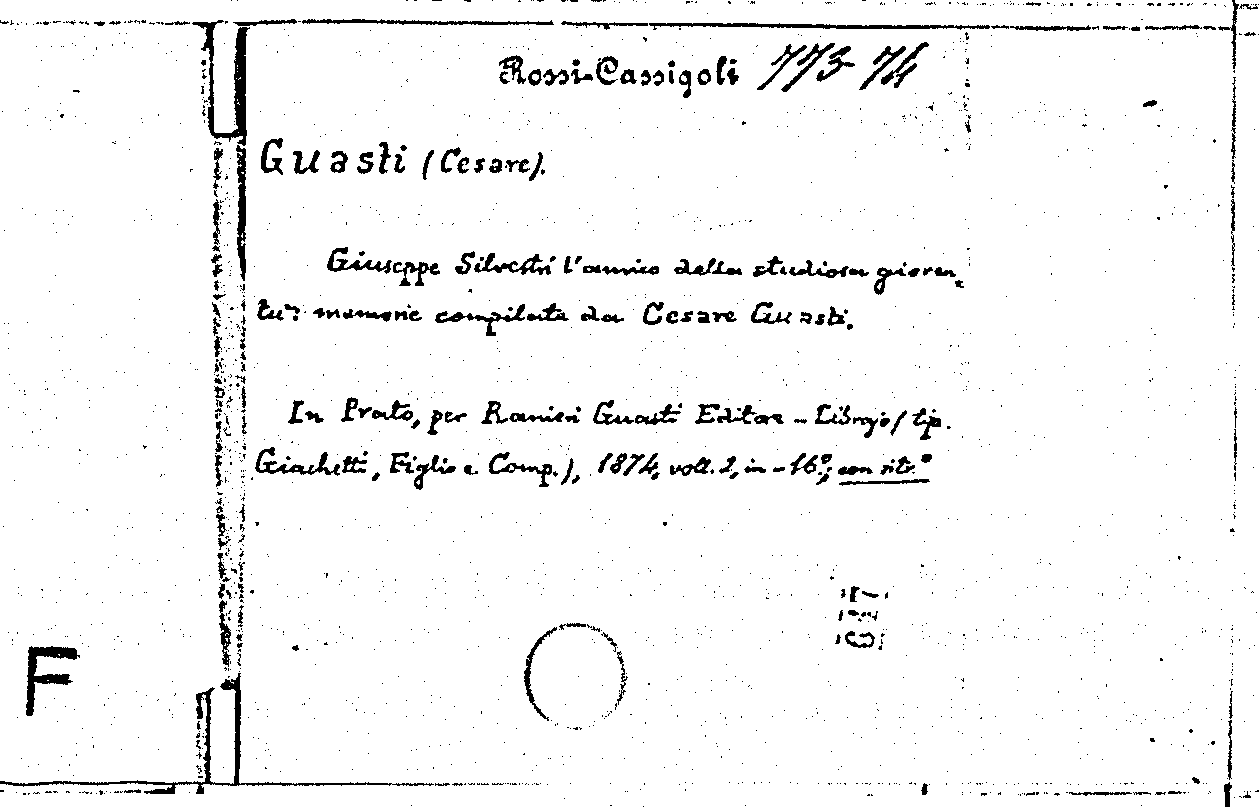 Rossi-Cassigoli 773-74
Guasti (Cesare).
Giuseppe Silvestri l'amico della studiosa gioven-
tù: memorie compilate da Cesare Guasti.
In Prato, per Ranieri Guasti Editore - Librajo (tip.
Giachetti, Figlio e Comp.), 1874, voll. 2, in-16º; con ritr.º
F